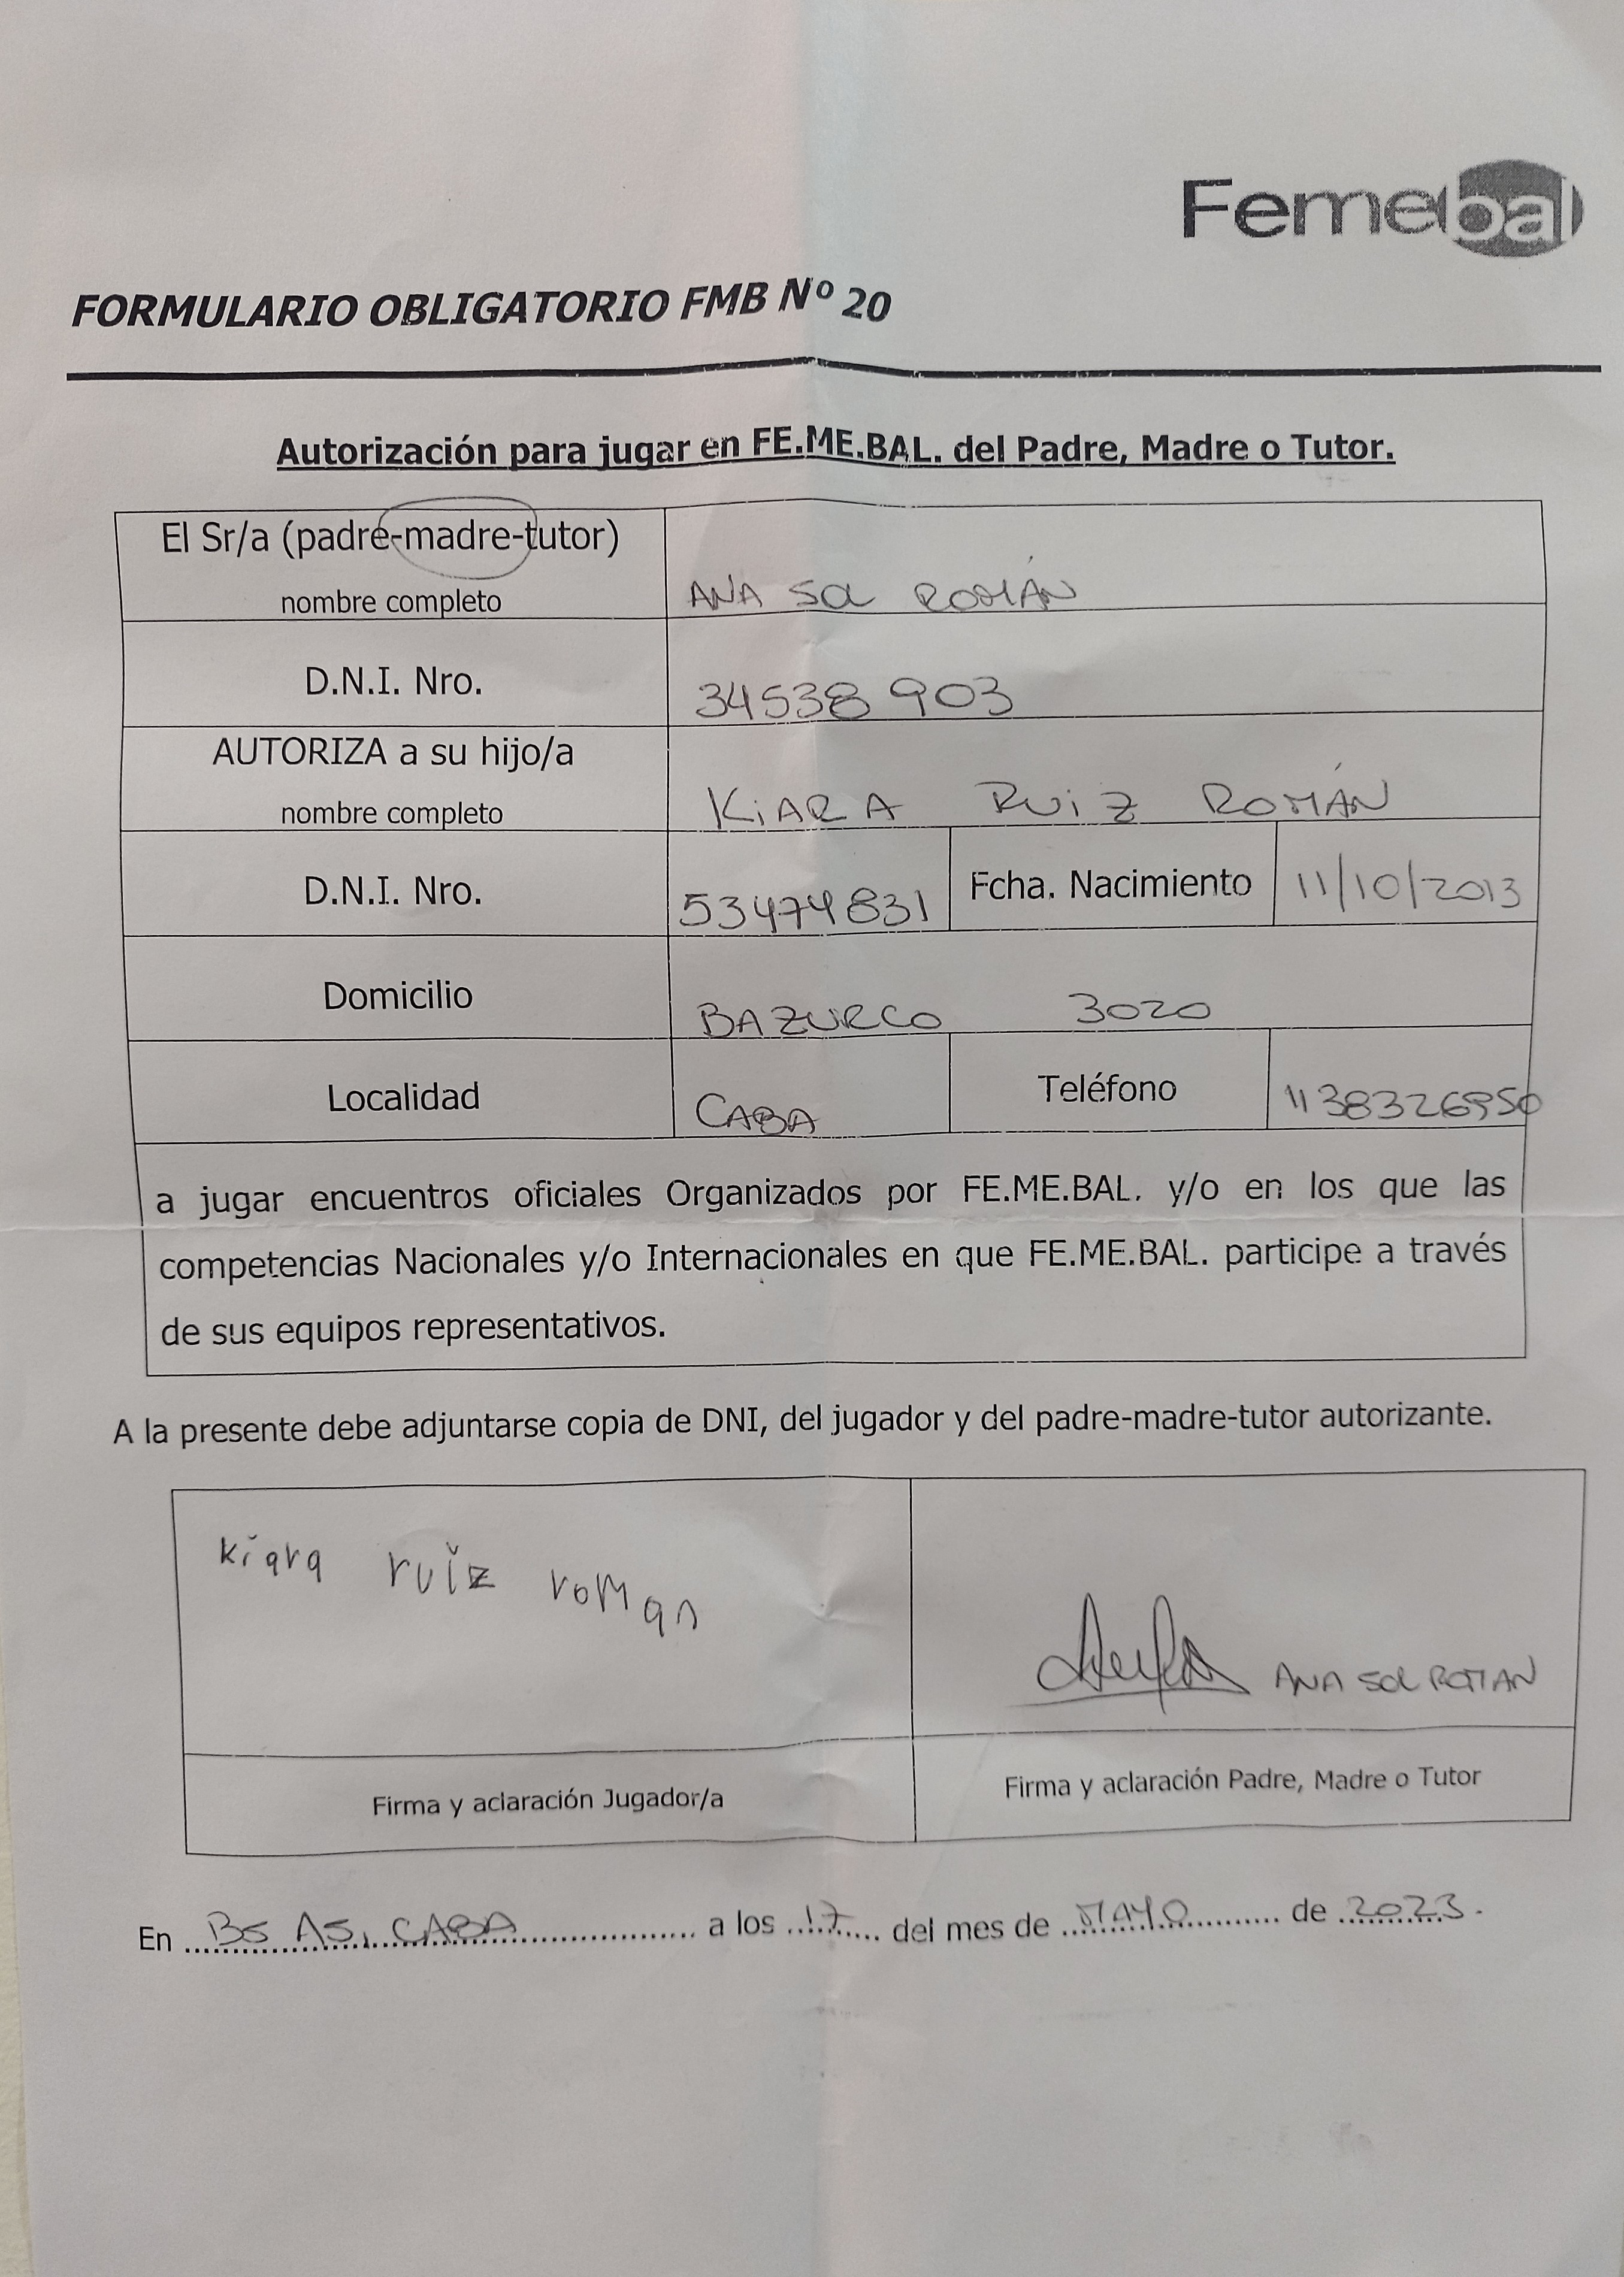 Femebal
FORMULARIO OBLIGATORIO FMB Nº 20
Autorización para jugar en FE.ME.BAL. del Padre, Madre o Tutor.
El Sr/a (padre-madre-tutor)
nombre completo
ANA SOL ROMÁN
D.N.I. Nro.
34538903
AUTORIZA a su hijo/a
nombre completo
KiARA RUiZ ROMÁN
D.N.I. Nro.
53474831
Fcha. Nacimiento
11/10/2013
Domicilio
BAZURCO 3020
Localidad
CABA
Teléfono
a jugar encuentros oficiales Organizados por FE.ME.BAL. y/o en los que las
competencias Nacionales y/o Internacionales en que FE.ME.BAL. participe a través
de sus equipos representativos.
A la presente debe adjuntarse copia de DNI, del jugador y del padre-madre-tutor autorizante.
kiara ruiz roman
ANA SOL ROMAN
Firma y aclaración Jugador/a
Firma y aclaración Padre, Madre o Tutor
En BS AS, CABA a los 17 del mes de MAYO de 2023.